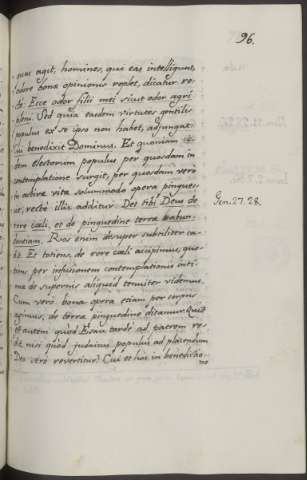 96.
suas agit, homines, quę eas intelligunt,
odore bonę opinionis replet, dicatur re-
ctè: Ecce odor filii mei sicut odor agri
pleni. Sed quia easdem virtutes gentilis
populus ex se ipso non habet, adjungat:
cui benedixit Dominus. Et quoniam
dem electorum populus per quosdam in
contemplatione surgit, per quosdam verò
in activa vita solummodo opera pingues-
cit, rectè illic additur: Det tibi Deus de
rore cæli, et de pinguedine terræ habun-
dantiam. Ros enim desuper subtiliter ca-
dit. Et toties, de rore cæli accipimus, quo-
tiens per infusionem contemplationis inti-
mæ de supernis aliquid tenuiter videmus.
Cum verò bona opera etiam per corpus
agimus, de terræ pinguedine ditamur. Quid
est autem quod Esau tardè ad patrem re-
dit nisi quod judaicus populus ad placendum
Deo serò revertitur? Cui et hoc in benedictio-
ne
Gen. 27. 28.